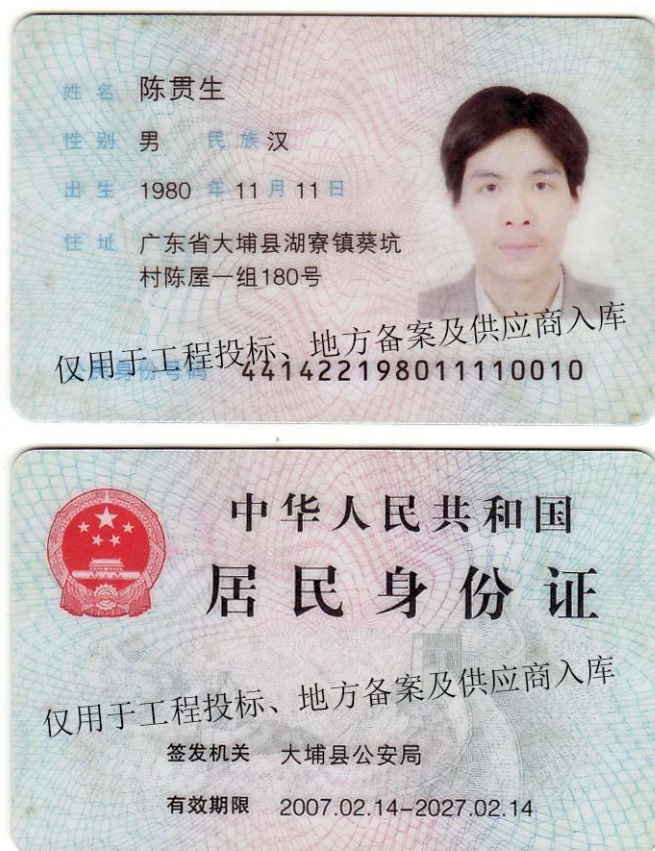 姓名 陈贯生
性别 男 民族 汉
出生 1980 年 11 月 11 日
住址 广东省大埔县湖寮镇葵坑
村陈屋一组180号
仅用于工程投标、地方备案及供应商入库
身份号码 441422198011110010
中华人民共和国
居民身份证
仅用于工程投标、地方备案及供应商入库
签发机关 大埔县公安局
有效期限 2007.02.14-2027.02.14